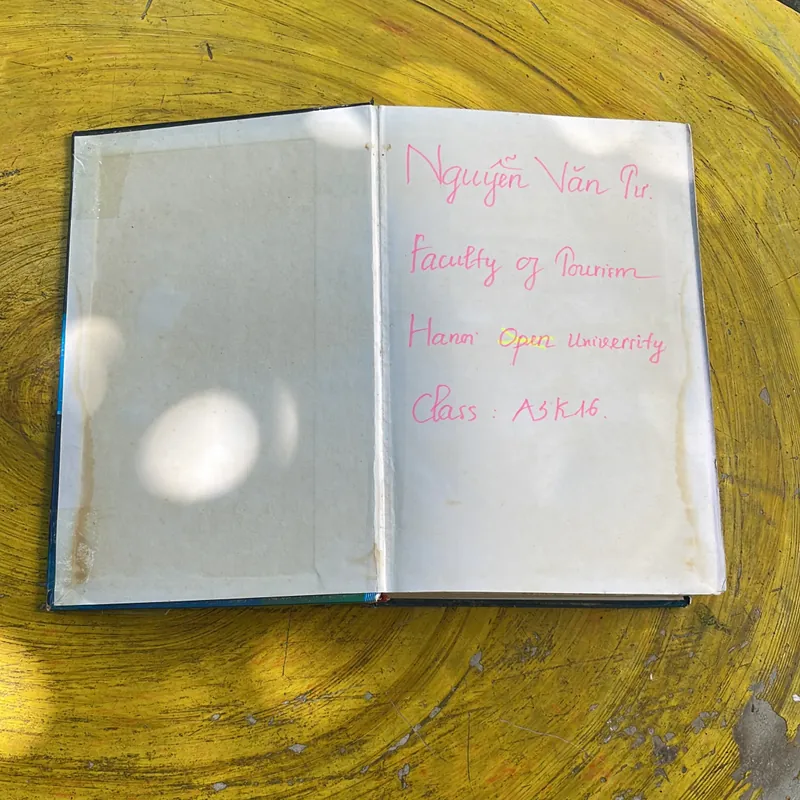 Nguyễn Văn Tư.
Faculty of Tourism
Hanoi Open University
Class : A5K16.